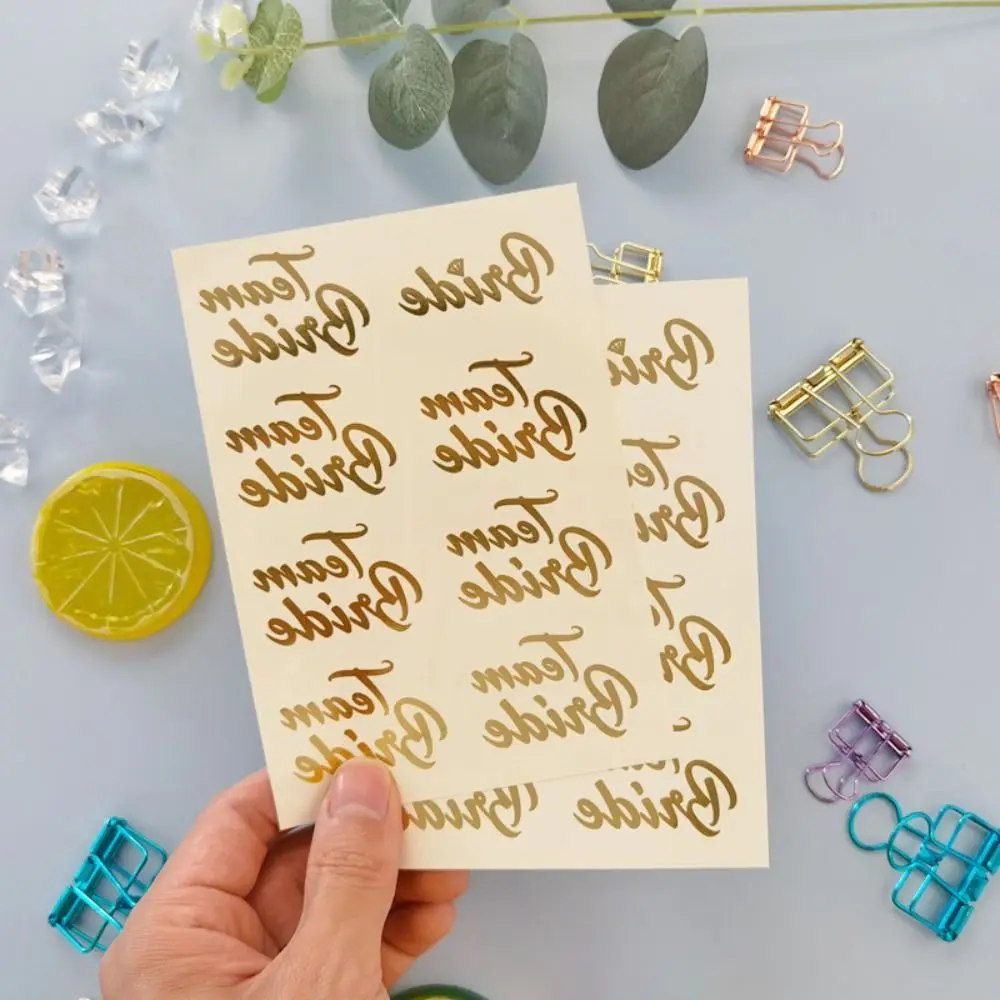 Team
Bride
Bride
Team
Bride
Team
Bride
Team
Bride
Team
Bride
Team
Bride
Team
Bride
Bri
Te
Bri
Br
Bride